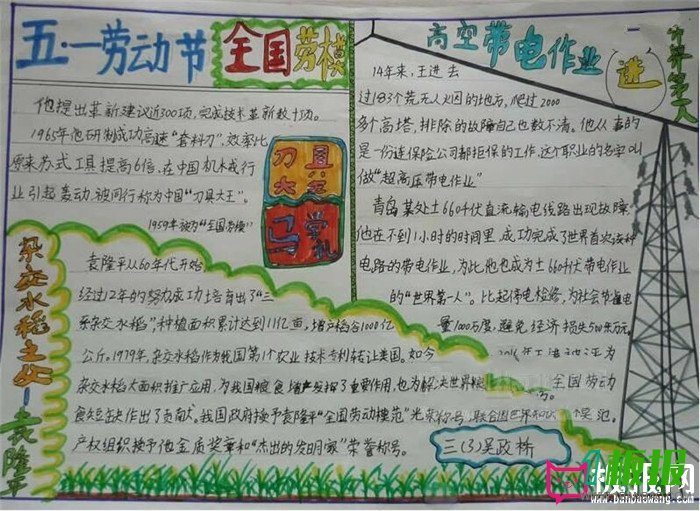 五·一劳动节
全国劳模
他提出革新建议近300项,完成技术革新数十项。
1965年他研制成功高速“套料刀”,效率比
原来苏式工具提高6倍,在中国机木戒行
业引起轰动,被同行称为中国“刀具大王”。
1959年被为“全国劳模”
刀具
大王
马学礼
杂交水稻之父—袁隆平
袁隆平从60年代开始,
经过12年的努力成功培育出了“三
系杂交水稻”,种植面积累计达到11亿亩,增产稻谷1000亿
公斤。1979年,杂交水稻作为我国第1个农业技术专利转让美国。如今
杂交水稻大面积推广应用,为我国粮食增产发挥了重要作用,也为解决世界粮
食短缺作出了贡献,我国政府授予袁隆平“全国劳动模范”光荣称号,联合国世界知识
产权组织授予他金质奖章和“杰出的发明家”荣誉称号。
高空带电作业
世界第一人
14年来,王进去
过183个荒无人烟的地方,爬过2000
多个高塔,排除的故障自己也数不清。他从事的
是一份连保险公司都拒保的工作,这个职业的名字叫
做“超高压带电作业”
青岛某处±660千伏直流输电线路出现故障,
他在不到1小时的时间里,成功完成了世界首次该种
电路的带电作业,为此他也成为±660千伏带电作业
的“世界第一人”。比起停电检修,为社会节省电
量1000万度,避免经济损失500多万元。
全国劳动
三(3)吴政桥
板报网
www.banbaowang.com